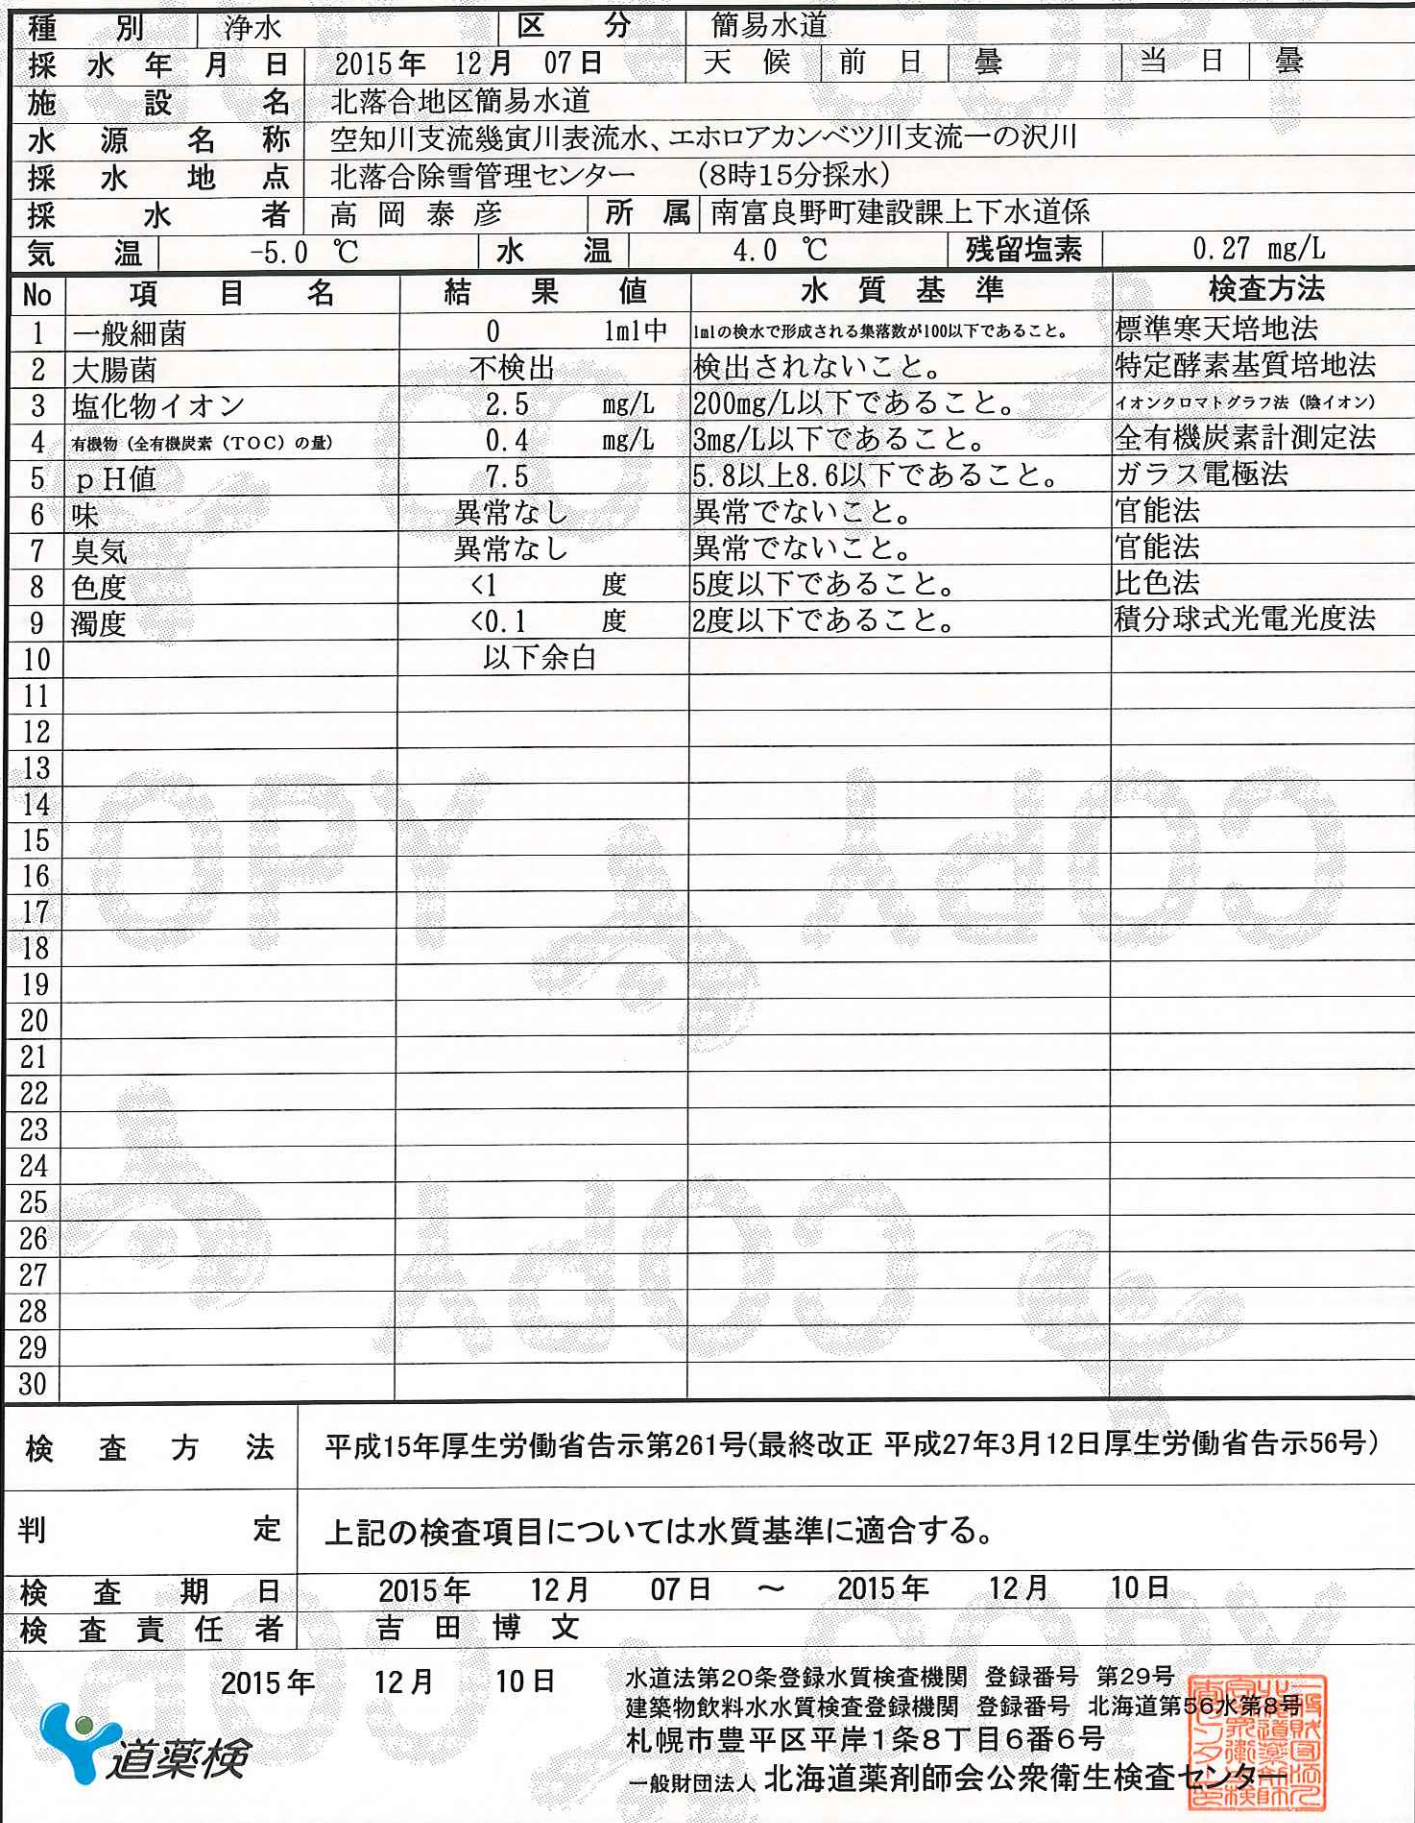 種別 浄水 区分 簡易水道
採水年月日 2015年 12月 07日 天候 前日 曇 当日 曇
施設名 北落合地区簡易水道
水源名称 空知川支流幾寅川表流水、エホロアカンベツ川支流一の沢川
採水地点 北落合除雪管理センター (8時15分採水)
採水者 高岡泰彦 所属 南富良野町建設課上下水道係
気温 -5.0 ℃ 水温 4.0 ℃ 残留塩素 0.27 mg/L
No 項目名 結果値 水質基準 検査方法
1 一般細菌 0 1ml中 1mlの検水で形成される集落数が100以下であること。 標準寒天培地法
2 大腸菌 不検出 検出されないこと。 特定酵素基質培地法
3 塩化物イオン 2.5 mg/L 200mg/L以下であること。 イオンクロマトグラフ法（陰イオン）
4 有機物（全有機炭素（TOC）の量） 0.4 mg/L 3mg/L以下であること。 全有機炭素計測定法
5 pH値 7.5 5.8以上8.6以下であること。 ガラス電極法
6 味 異常なし 異常でないこと。 官能法
7 臭気 異常なし 異常でないこと。 官能法
8 色度 <1 度 5度以下であること。 比色法
9 濁度 <0.1 度 2度以下であること。 積分球式光電光度法
10 以下余白
11
12
13
14
15
16
17
18
19
20
21
22
23
24
25
26
27
28
29
30
検査方法 平成15年厚生労働省告示第261号(最終改正 平成27年3月12日厚生労働省告示56号)
判定 上記の検査項目については水質基準に適合する。
検査期日 2015年 12月 07日 ～ 2015年 12月 10日
検査責任者 吉田博文
2015年 12月 10日
水道法第20条登録水質検査機関 登録番号 第29号
建築物飲料水水質検査登録機関 登録番号 北海道第56水第8号
札幌市豊平区平岸1条8丁目6番6号
一般財団法人 北海道薬剤師会公衆衛生検査センター
道薬検
COPY
COPY
COPY
COPY
COPY
COPY